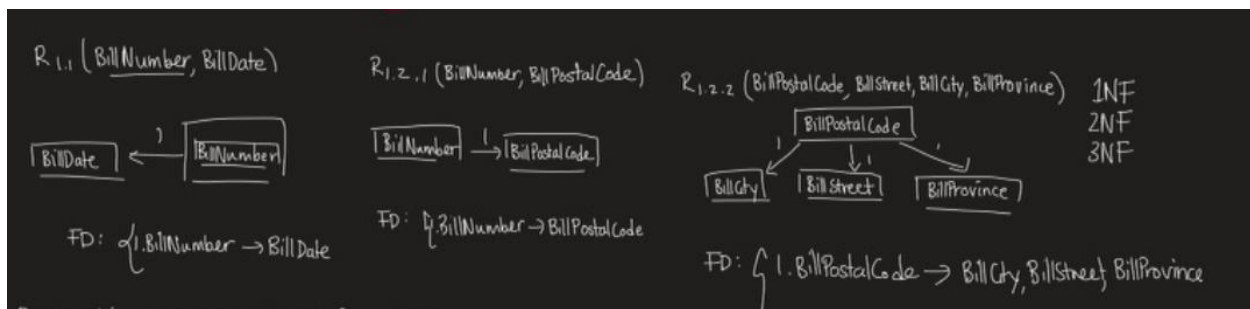 R1.1 (BillNumber, BillDate)
BillDate
1
BillNumber
FD: { 1. BillNumber → BillDate
R1.2.1 (BillNumber, BillPostalCode)
BillNumber
1
BillPostalCode
FD: { 1. BillNumber → BillPostalCode
R1.2.2 (BillPostalCode, BillStreet, BillCity, BillProvince)
BillPostalCode
1
1
1
BillCity
BillStreet
BillProvince
FD: { 1. BillPostalCode → BillCity, BillStreet, BillProvince
1NF
2NF
3NF